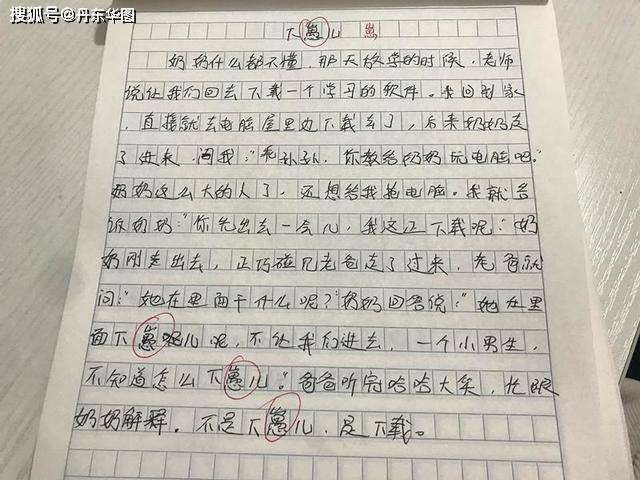 搜狐号@丹东华图
下崽儿 崽
奶奶什么都不懂，那天放学的时候，老师
说让我们回去下载一个学习的软件。我回到家
，直接就去电脑屋里边下载去了，后来奶奶走
了进来，问我："乖孙孙，你教给奶奶玩电脑吧。"
奶奶这么大的人了，还想给我抢电脑。我就告
诉奶奶："你先出去一会儿，我这正下载呢。"奶
奶刚走出去，正巧碰见老爸走了过来，老爸就
问："她在里面干什么呢？"奶奶回答说："她在里
面下崽呢儿呢，不让我们进去，一个小男生，
不知道怎么下崽儿。"爸爸听完哈哈大笑，忙跟
奶奶解释，不是下崽儿，是下载。